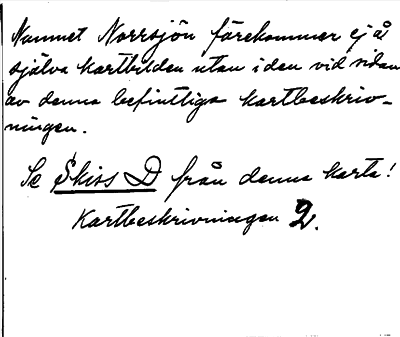 Namnet Norrsjön förekommer ej å
själva kartbilden utan i den vid sidan
av denna befintliga kartbeskriv-
ningen.
Se Skiss D från denna karta!
Kartbeskrivningen 2.